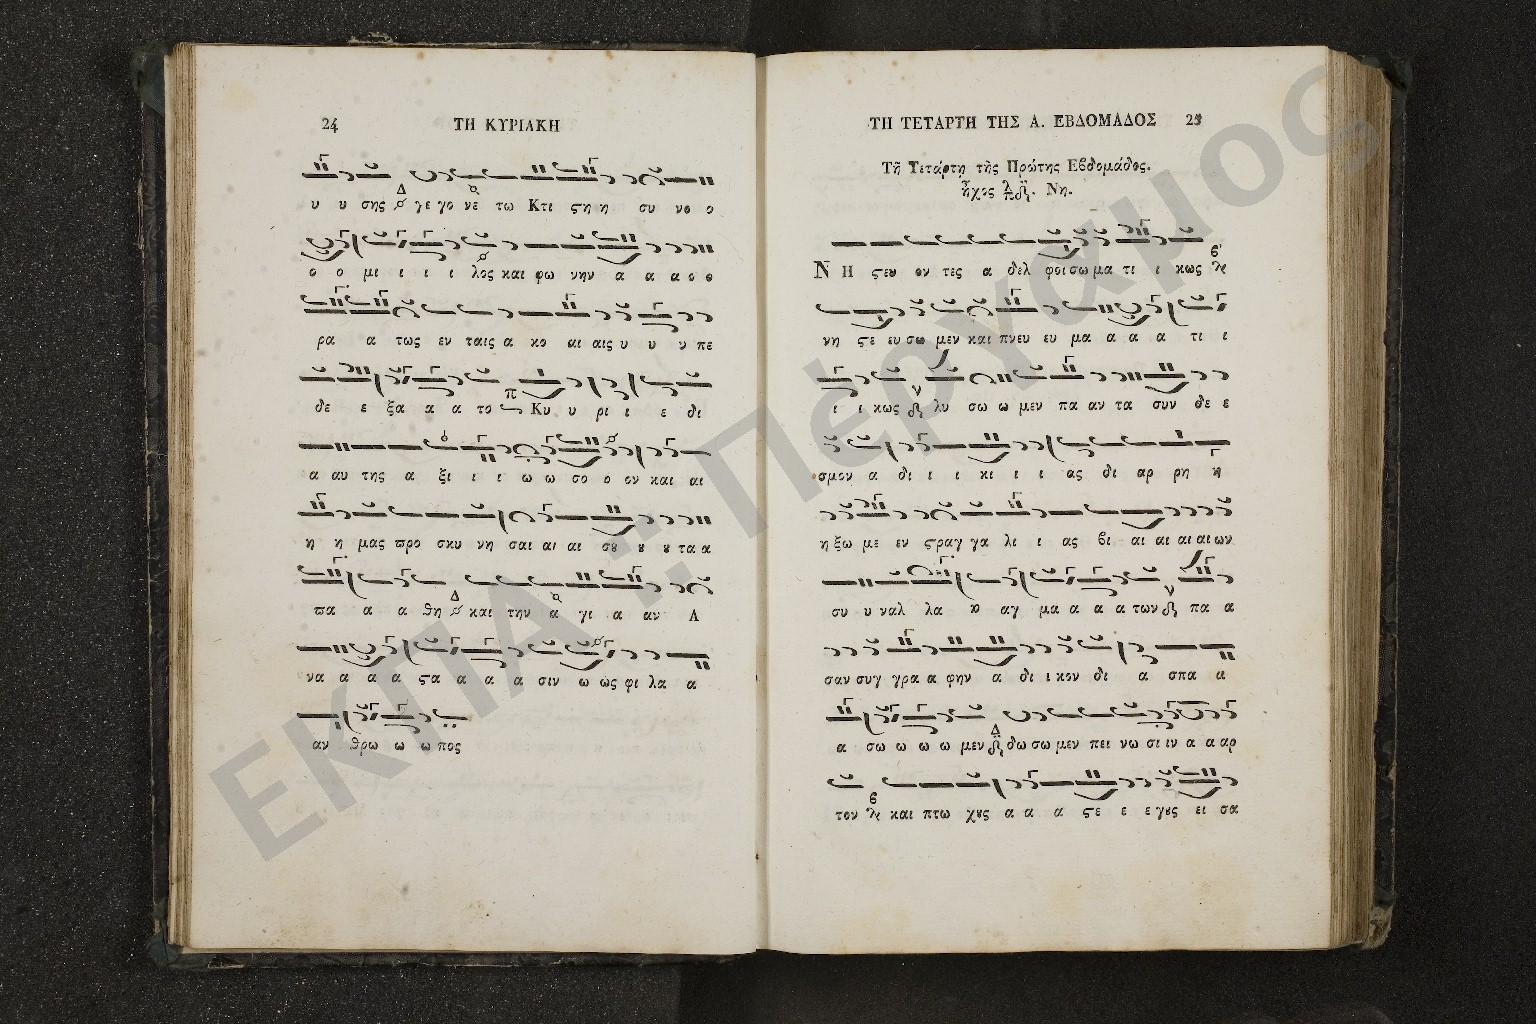 24 ΤΗ ΚΥΡΙΑΚΗ
υ υ σης γε γο νε τω Κτι ϛη η συ νο ο
ο ο μι ι ι ι λος και φω νην α α α ο ο
ρα α τως εν ταις α κο αι αις υ υ υ πε
δε ε ξα α α το Κυ υ ρι ι ε δι
α αυ της α ξι ι ι ω ω σο ο ον και αι
η η μας προ σκυ νη σαι αι αι σȣ ȣ ȣ τα α
πα α α θη και την α γι α αν Α
να α α α ϛα α α α σιν ω ως φι λα α
αν θρω ω ω πος
ΤΗ ΤΕΤΑΡΤΗ ΤΗΣ Α. ΕΒΔΟΜΑΔΟΣ 25
Τῇ Τετάρτῃ τῆς Πρώτης Εβδομάδος.
ἦχος Νη.
Ν Η ϛευ ον τες α δελ φοι σω μα τι ι κως
νη ϛε ευ σω μεν και πνευ ευ μα α α α τι ι
ι ι κως λυ σω ω μεν πα αν τα συν δε ε
σμον α δι ι ι κι ι ι ας δι αρ ρη η
η ξω με εν ϛραγ γα λι ι ας βι αι αι αι αι ων
συ υ ναλ λα α αγ μα α α α των πα α
σαν συγ γρα α φην α δι ι κον δι α σπα α
α σω ω ω ω μεν δω σω μεν πει νω σι ιν α α αρ
τον και πτω χȣς α α α ϛε ε ε γȣς ει σα
ΕΚΠΑ: Πέργαμος